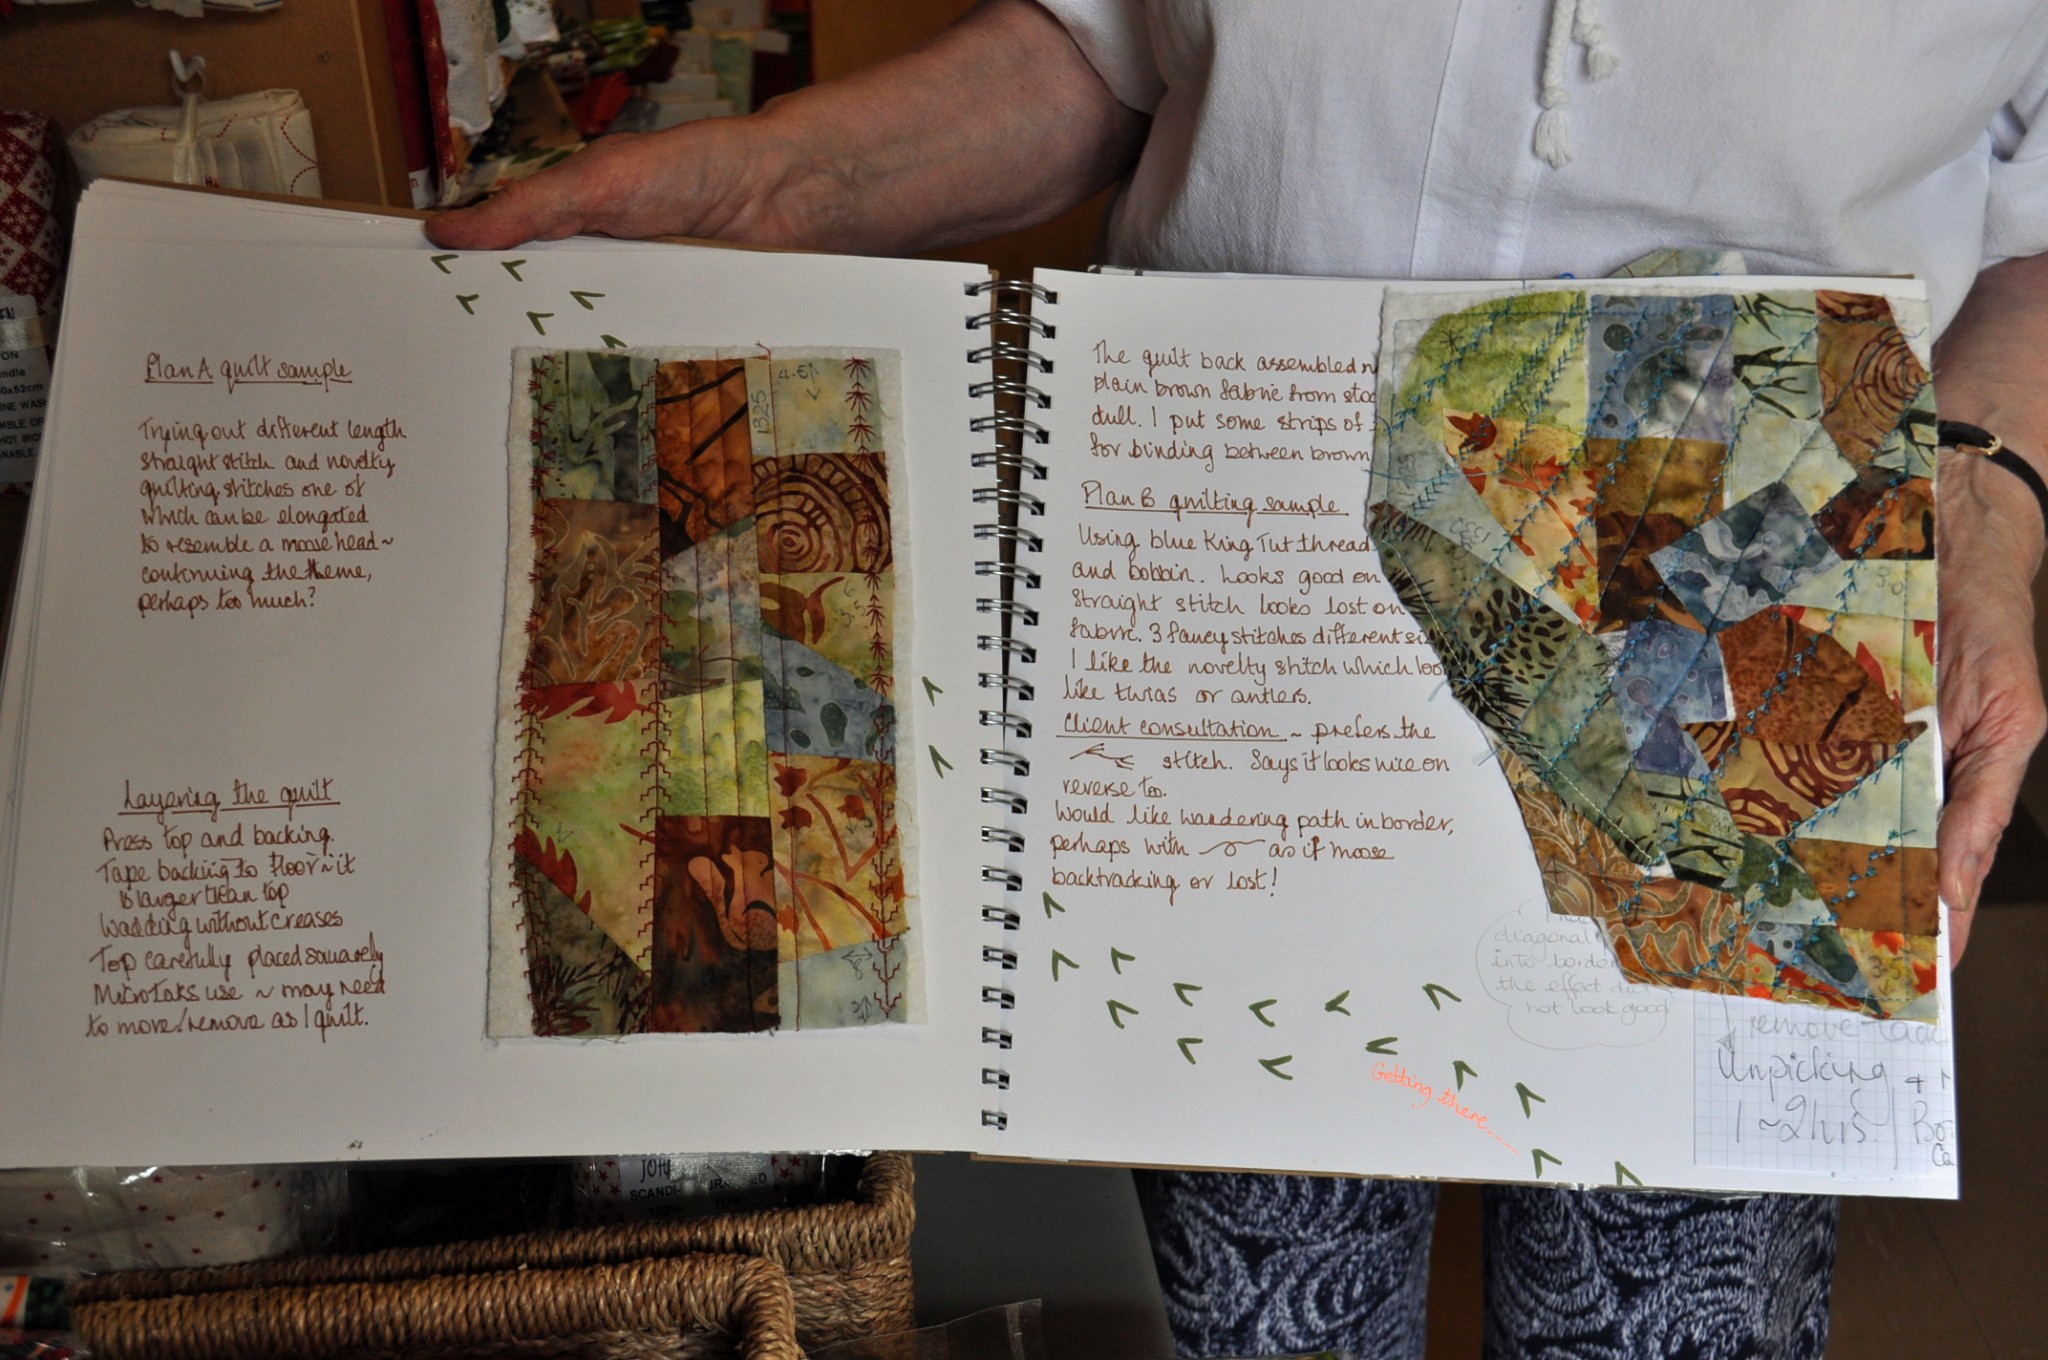 Plan A quilt sample
Trying out different length
straight stitch and novelty
quilting stitches one of
which can be elongated
to resemble a moose head ~
continuing the theme,
perhaps too much?
Layering the quilt
Press top and backing.
Tape backing to floor ~ it
is larger than top
Wadding without creases
Top carefully placed squarely
Microtaks use ~ may need
to move/remove as I quilt.
1325
4.5
6
3.5
The quilt back assembled
plain brown fabric from
dull. I put some strips of
for binding between brown
Plan B quilting sample
Using blue King Tut thread
and bobbin. Looks good on
straight stitch looks lost on
fabric. 3 fancy stitches different
I like the novelty stitch which
like twigs or antlers.
Client consultation ~ prefers the
stitch. Says it looks nice on
reverse too.
Would like wandering path in border,
perhaps with as if moose
backtracking or lost!
3.0
3.5
diagonal
into border
the effect
not look good
Getting there----
remove
Unpicking
1~2hrs.
JOH
SCANDI
100%